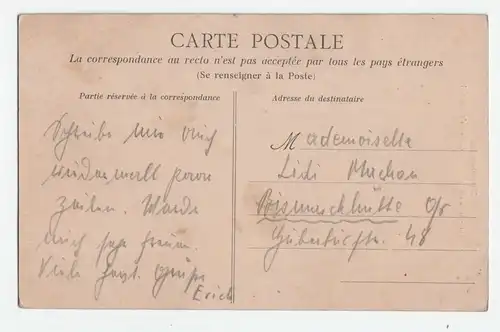 CARTE POSTALE
La correspondance au recto n'est pas acceptée par tous les pays étrangers
(Se renseigner à la Poste)
Partie réservée à la correspondance
Schreibe mir auch
wieder mall paar
Zeilen. Würde
mich sehr freuen.
Viele herzl. Grüße
Erich
Adresse du destinataire
Mademoiselle
Lidi
Bismarckhütte O/S
48